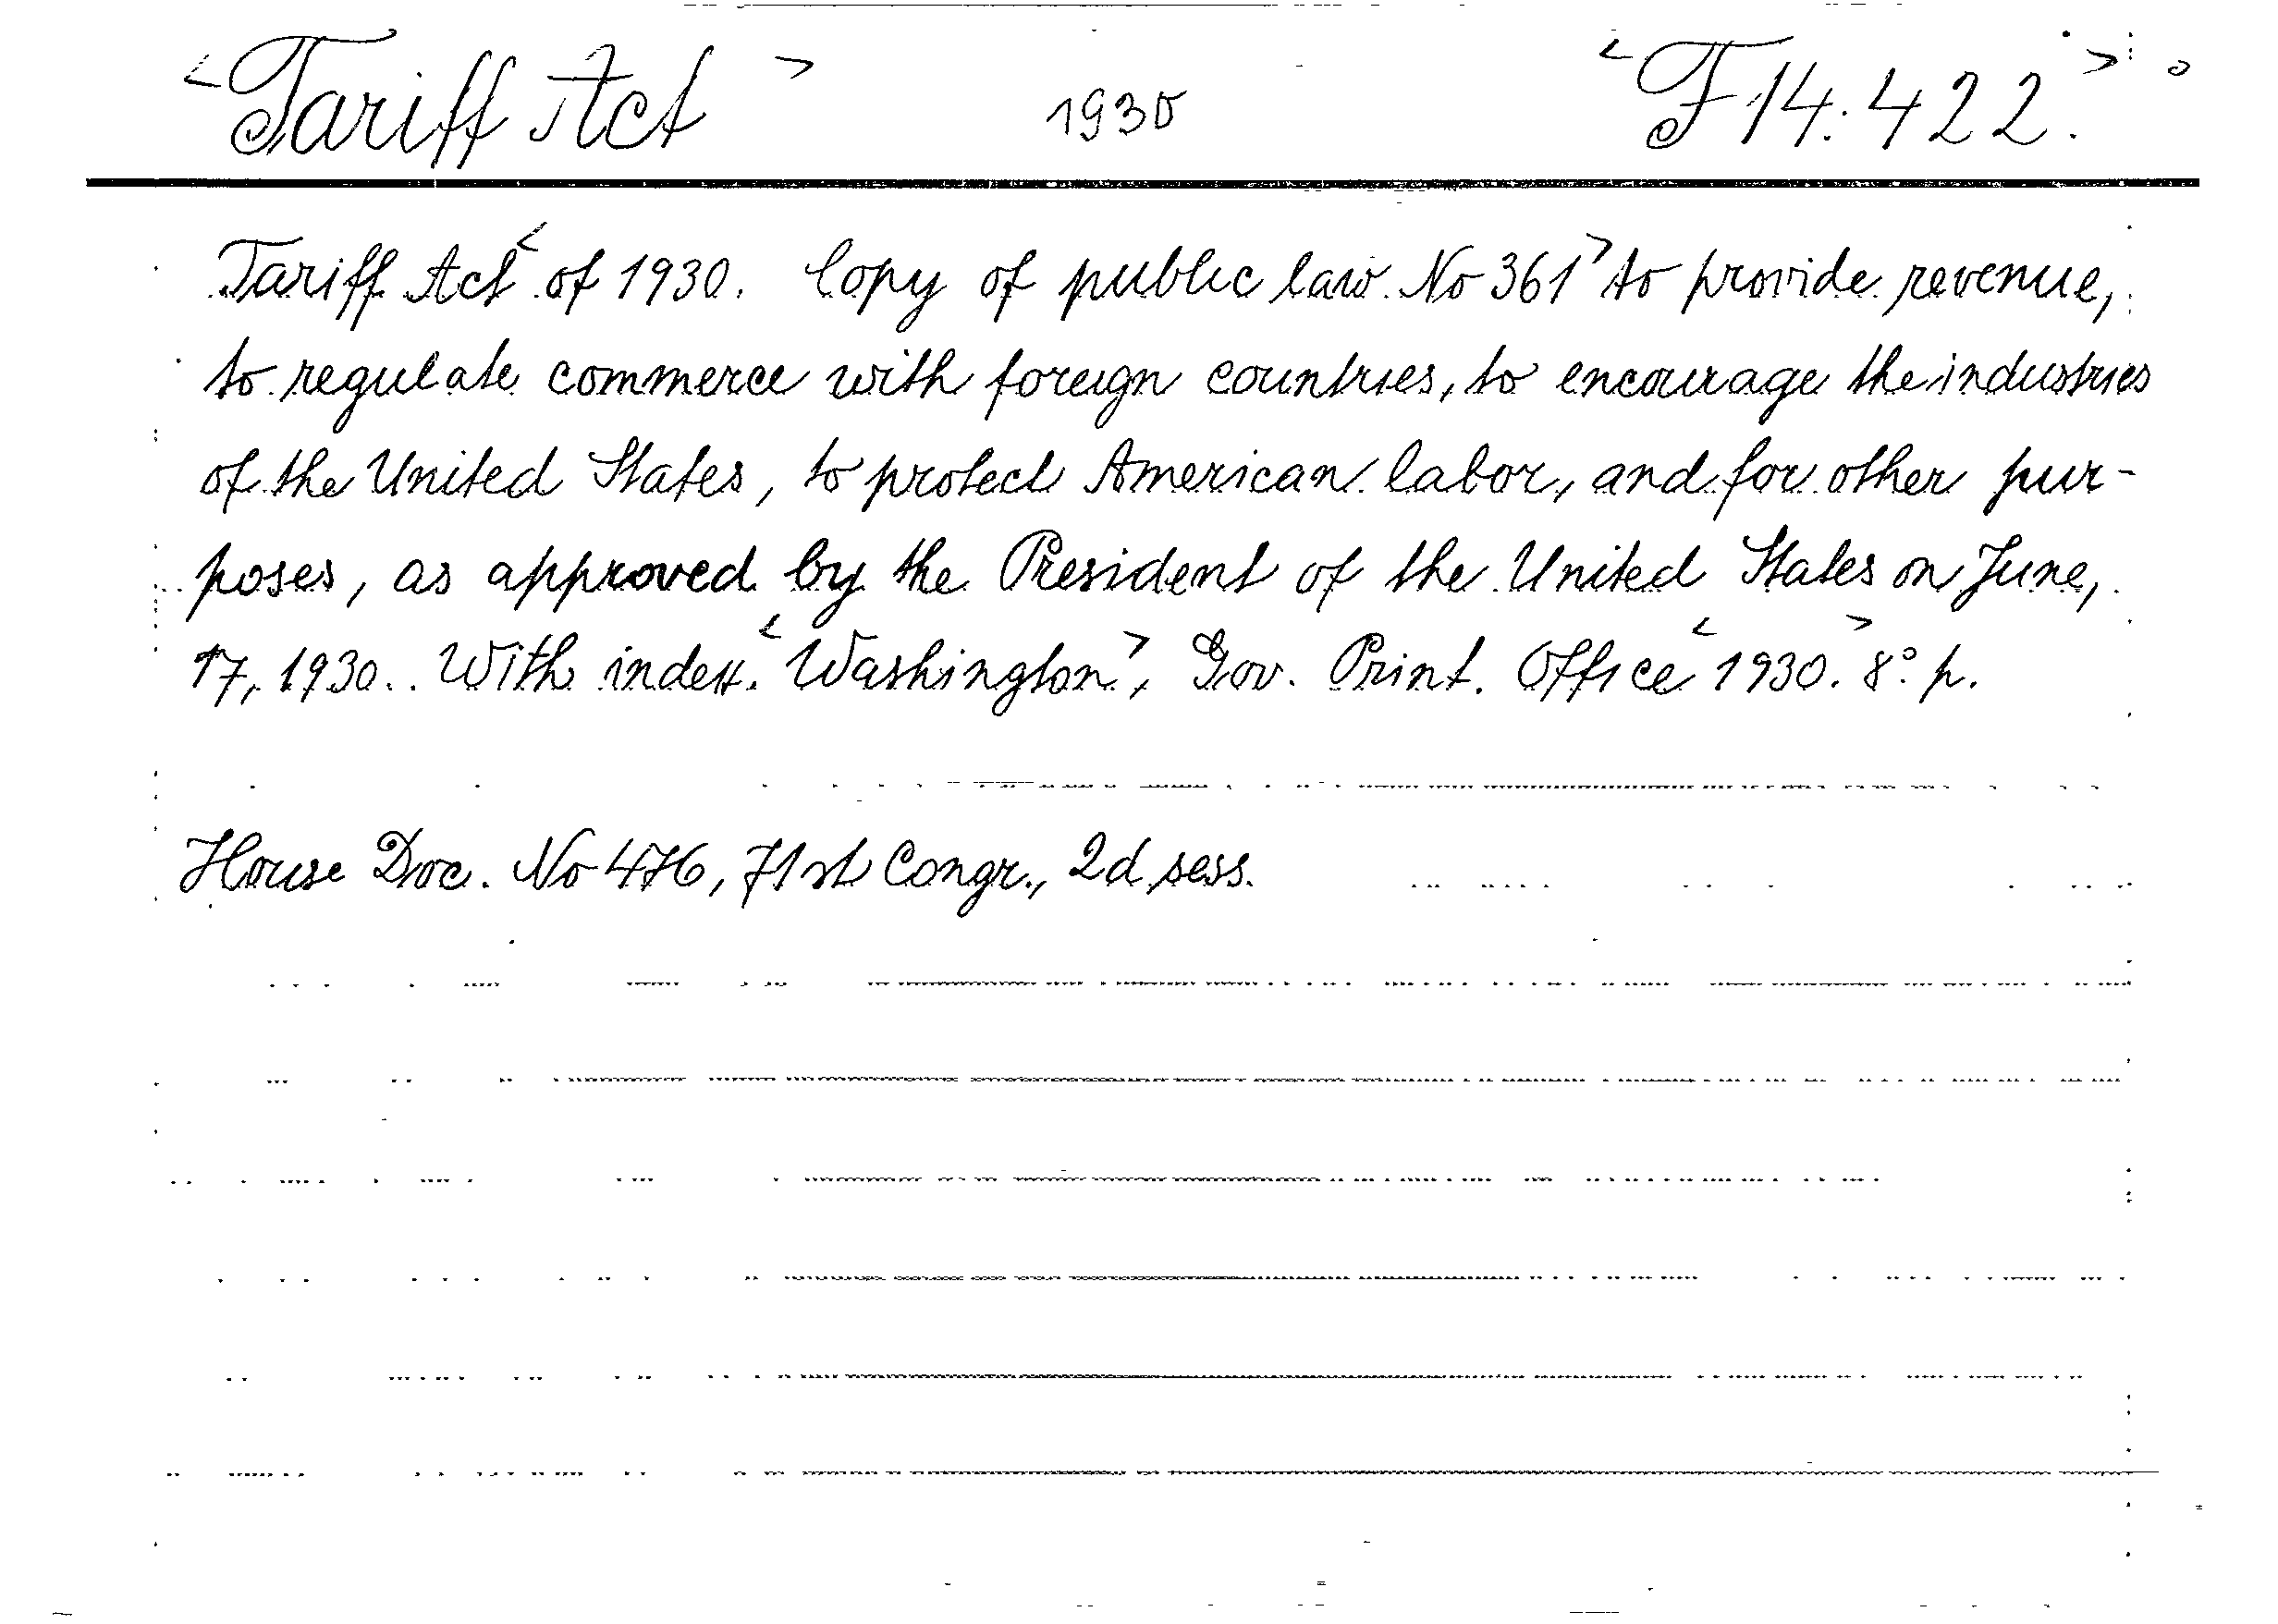 <Tariff Act> 1930 <F 14: 422.>
Tariff Act <of 1930. Copy of public law No 361> to provide revenue,
to regulate commerce with foreign countries, to encourage the industries
of the United States, to protect American labor, and for other pur-
poses, as approved by the President of the United States on June,
17, 1930. With index. <Washington>, Gov. Print. Office <1930>. 8° p.
House Doc. No 476, 71st Congr., 2d sess.